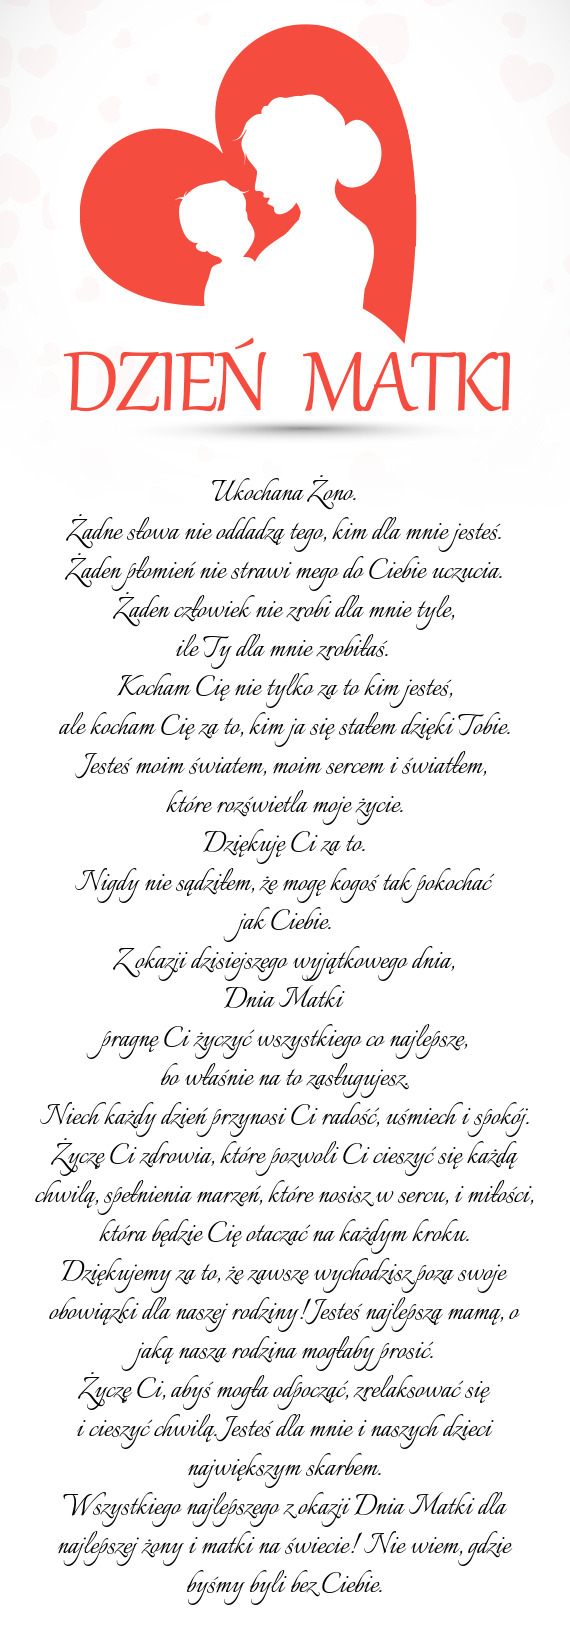 DZIEŃ MATKI
Ukochana Żono.
Żadne słowa nie oddadzą tego, kim dla mnie jesteś.
Żaden płomień nie strawi mego do Ciebie uczucia.
Żaden człowiek nie zrobi dla mnie tyle,
ile Ty dla mnie zrobiłaś.
Kocham Cię nie tylko za to kim jesteś,
ale kocham Cię za to, kim ja się stałem dzięki Tobie.
Jesteś moim światem, moim sercem i światłem,
które rozświetla moje życie.
Dziękuję Ci za to.
Nigdy nie sądziłem, że mogę kogoś tak pokochać
jak Ciebie.
Z okazji dzisiejszego wyjątkowego dnia,
Dnia Matki
pragnę Ci życzyć wszystkiego co najlepsze,
bo właśnie na to zasługujesz.
Niech każdy dzień przynosi Ci radość, uśmiech i spokój.
Życzę Ci zdrowia, które pozwoli Ci cieszyć się każdą
chwilą, spełnienia marzeń, które nosisz w sercu, i miłości,
która będzie Cię otaczać na każdym kroku.
Dziękujemy za to, że zawsze wychodzisz poza swoje
obowiązki dla naszej rodziny! Jesteś najlepszą mamą, o
jaką nasza rodzina mogłaby prosić.
Życzę Ci, abyś mogła odpocząć, zrelaksować się
i cieszyć chwilą. Jesteś dla mnie i naszych dzieci
największym skarbem.
Wszystkiego najlepszego z okazji Dnia Matki dla
najlepszej żony i matki na świecie! Nie wiem, gdzie
byśmy byli bez Ciebie.